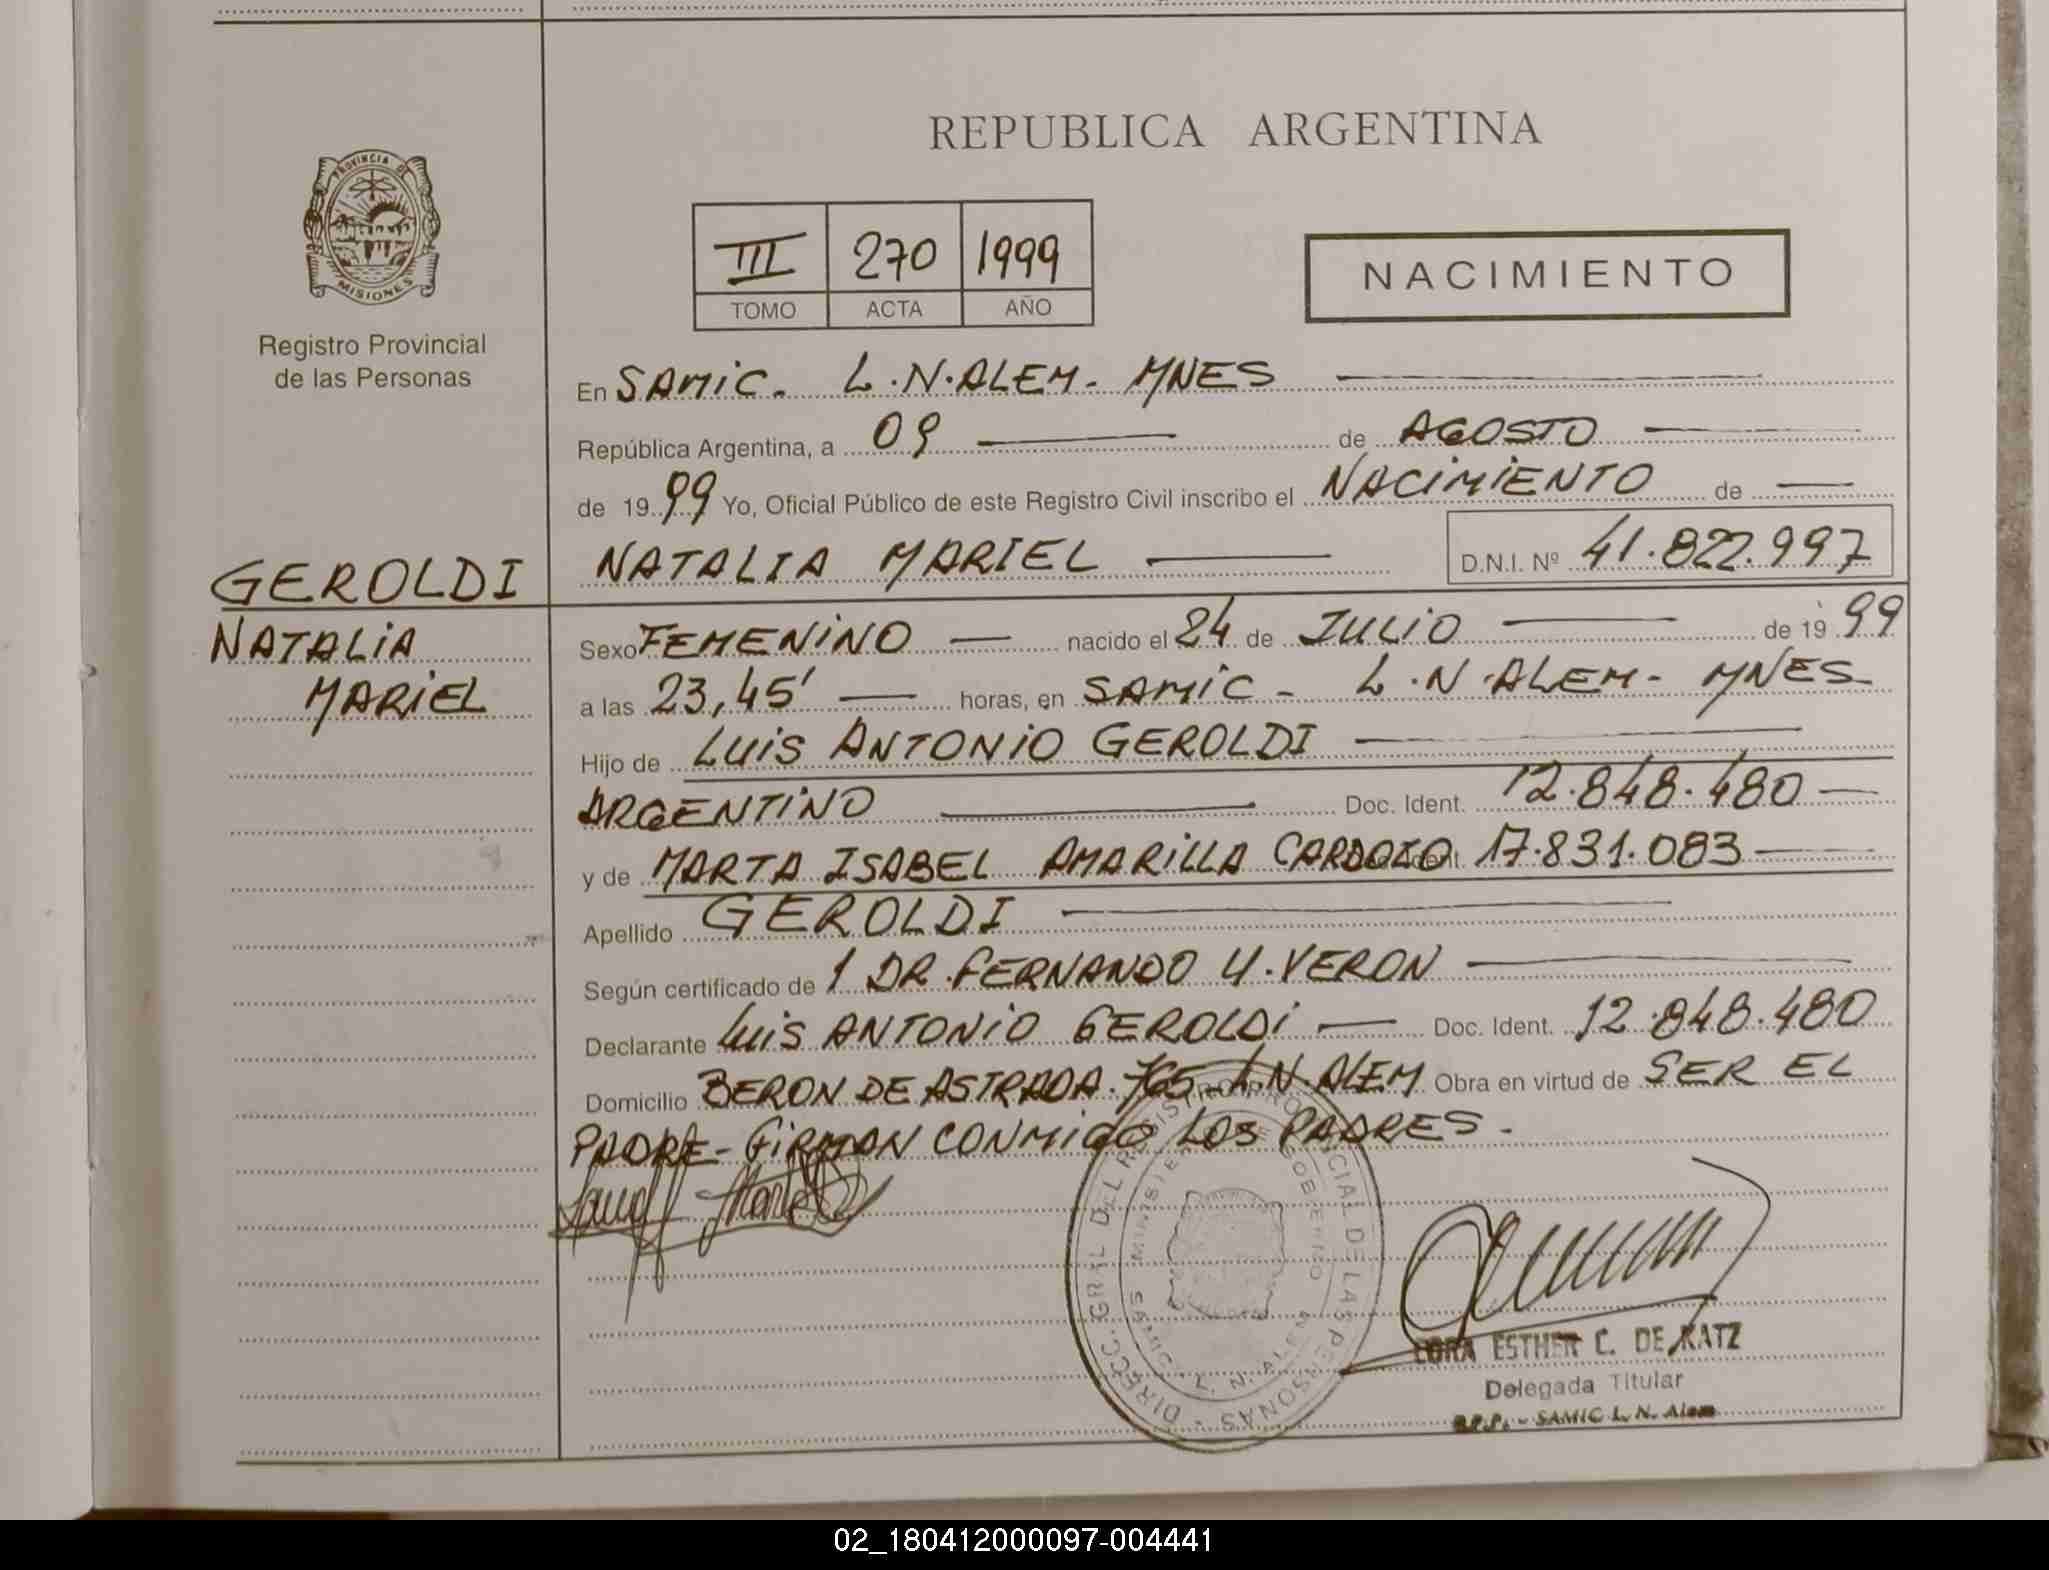 REPUBLICA ARGENTINA
PROVINCIA DE
MISIONES
Registro Provincial
de las Personas
III 270 1999
TOMO ACTA AÑO
NACIMIENTO
En SAMIC. L.N.ALEM- MNES
República Argentina, a 09 de AGOSTO
de 1999 Yo, Oficial Público de este Registro Civil inscribo el NACIMIENTO de
NATALIA MARIEL D.N.I. Nº 41.822.997
GEROLDI
NATALIA
MARIEL
Sexo FEMENINO nacido el 24 de JULIO de 1999
a las 23,45' horas, en SAMIC - L.N.ALEM- MNES
Hijo de LUIS ANTONIO GEROLDI
ARGENTINO Doc. Ident. 12.848.480
y de MARTA ISABEL AMARILLA CARDOZO 17.831.083
Apellido GEROLDI
Según certificado de 1 DR. FERNANDO Y. VERON
Declarante LUIS ANTONIO GEROLDI Doc. Ident. 12.848.480
Domicilio BERON DE ASTRADA. 765-L.N.ALEM Obra en virtud de SER EL
PADRE- FIRMAN CONMIGO LOS PADRES.
DIRECC. GRAL DEL REGISTRO PROVINCIAL DE LAS PERSONAS
MINISTERIO DE GOBIERNO
SAMIC L. N. ALEM
ESTHER C. DE KATZ
Delegada Titular
R.P.P. - SAMIC L. N. Alem
02_180412000097-004441